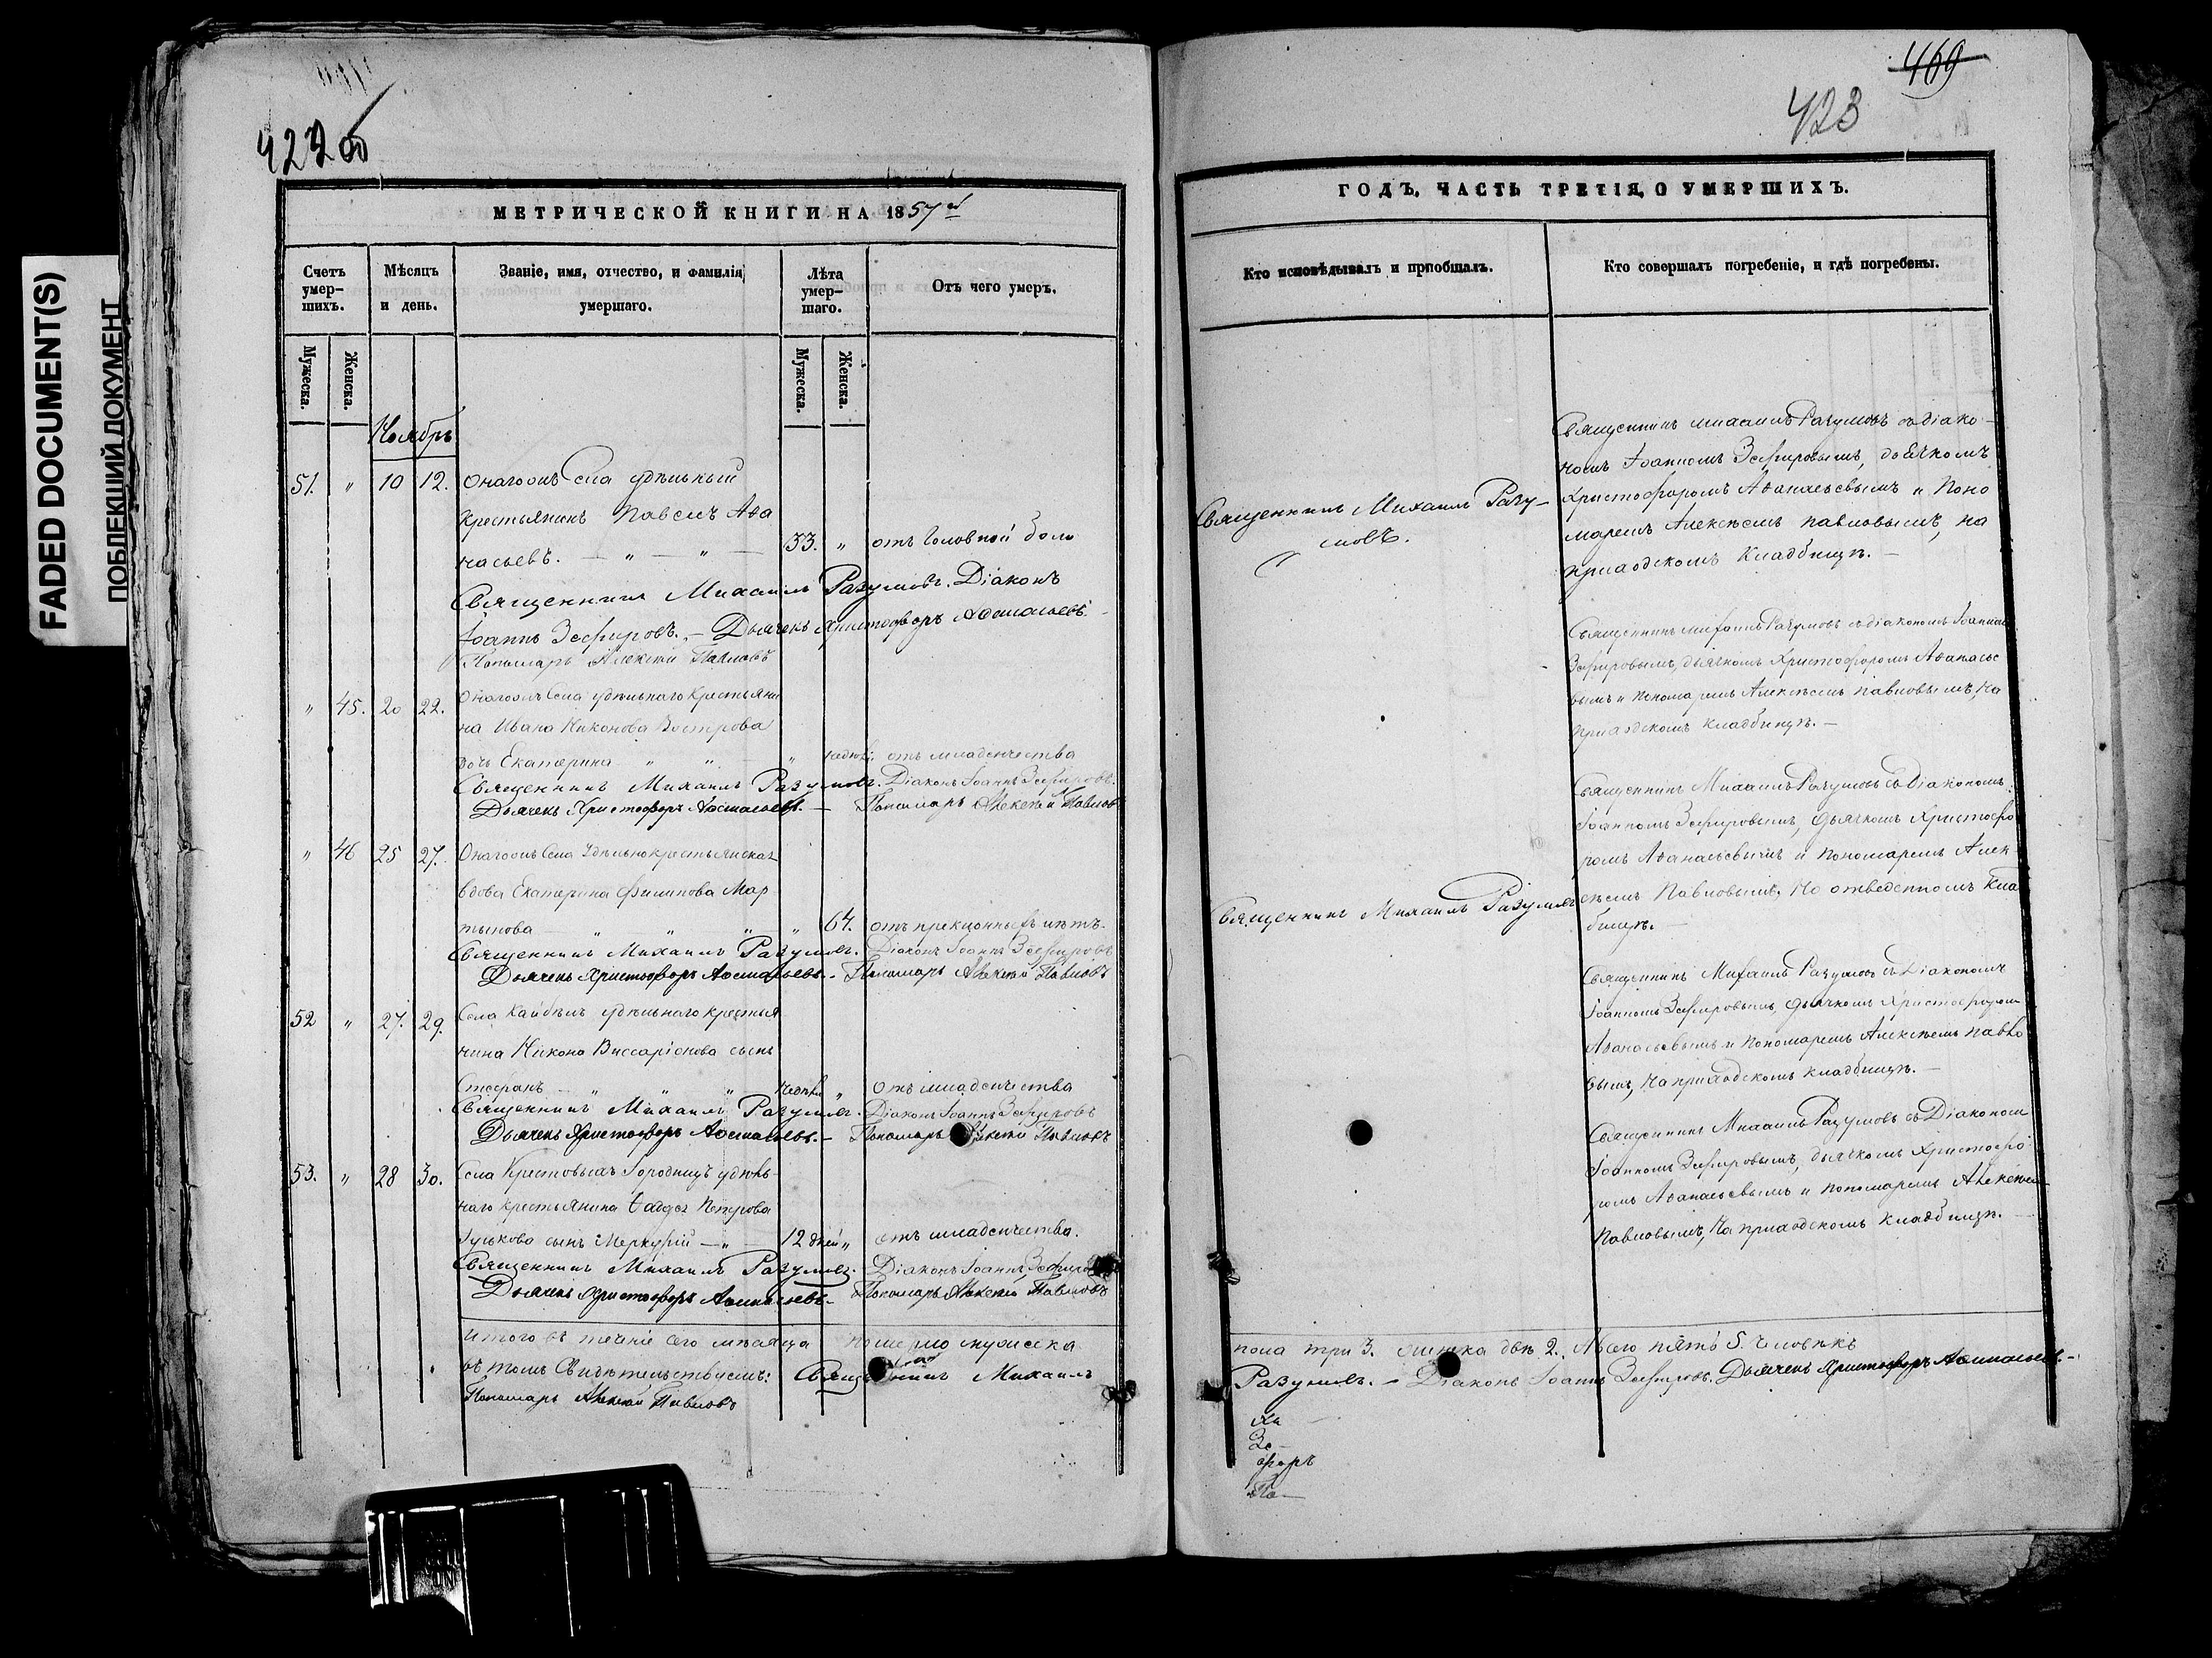 FADED DOCUMENT(S)
ПОБЛЕКЩИЙ ДОКУМЕНТ
422 об
МЕТРИЧЕСКОЙ КНИГИ НА 1857й
Счетъ умершихъ.
Мѣсяцъ и день.
Званіе, имя, отчество, и фамилія умершаго.
Лѣта умершаго.
Отъ чего умеръ.
Мужеска.
Женска.
Мужеска.
Женска.
Ноябрь
51. " 10 12. Онагожъ Села удѣльный
крестьянинъ Павелъ Аѳа
насьевъ. — " — " — 33. " отъ головной боли
Священникъ Михаилъ Разумовъ. Діаконъ
Іоаннъ Зефировъ. — Дьячекъ Христофоръ Аѳанасьевъ.
Пономарь Алексѣй Павловъ
" 45. 20 22. Онагожъ Села удѣльнаго крестьяни
на Ивана Никонова Вострова
дочь Екатерина " " " отъ младенчества
Священникъ Михаилъ Разумовъ. Діаконъ Іоаннъ Зефировъ.
Дьячекъ Христофоръ Аѳанасьевъ. — Пономарь Алексѣй Павловъ
" 46 25 27. Онагожъ Села Удѣльнокрестьянская
вдова Екатерина Филипова Мар
тынова " " " " 64. отъ преклонныхъ лѣтъ.
Священникъ Михаилъ Разумовъ. Діаконъ Іоаннъ Зефировъ
Дьячекъ Христофоръ Аѳанасьевъ. — Пономарь Алексѣй Павловъ
52 " 27. 29. Села Кайбѣлъ удѣльнаго крестья
нина Никона Виссаріонова сынъ
Стефанъ — " " " — " Отъ младенчества
Священникъ Михаилъ Разумовъ. Діаконъ Іоаннъ Зефировъ
Дьячекъ Христофоръ Аѳанасьевъ. — Пономарь Алексѣй Павловъ
53. " 28 30. Села Крестовыхъ Городищъ удѣль
наго крестьянина Петрова
Гуськова сынъ Меркурій — " — 12 дней " отъ младенчества.
Священникъ Михаилъ Разумовъ. Діаконъ Іоаннъ Зефировъ
Дьячекъ Христофоръ Аѳанасьевъ. — Пономарь Алексѣй Павловъ
Итого въ теченіе сего мѣсяца померло мужеска
въ томъ Свидѣтельствуемъ: Священникъ Михаилъ
Пономарь Алексѣй Павловъ
469
423
ГОДЪ, ЧАСТЬ ТРЕТІЯ, О УМЕРШИХЪ.
Кто исповѣдывалъ и пріобщалъ.
Кто совершалъ погребеніе, и гдѣ погребены.
Священникъ Михаилъ Разу-
мовъ.
Священникъ Михаилъ Разумовъ съ діако-
номъ Іоанномъ Зефировымъ, дьячкомъ
Христофоромъ Аѳанасьевымъ и Поно
маремъ Алексѣемъ Павловымъ, на
приходскомъ Кладбищѣ. —
Священникъ Михаилъ Разумовъ съ діакономъ Іоанномъ
Зефировымъ, дьячкомъ Христофоромъ Аѳанасье
вымъ и пономаремъ Алексѣемъ Павловымъ, на
приходскомъ кладбищѣ. —
Священникъ Михаилъ Разумовъ
Священникъ Михаилъ Разумовъ съ Діакономъ
Іоанномъ Зефировымъ, дьячкомъ Христофо
ромъ Аѳанасьевымъ и пономаремъ Алек
сѣемъ Павловымъ, на отведенномъ Клад
бищѣ. —
Священникъ Михаилъ Разумовъ съ Діакономъ
Іоанномъ Зефировымъ, дьячкомъ Христофоромъ
Аѳанасьевымъ и пономаремъ Алексѣемъ Павло
вымъ, на приходскомъ кладбищѣ. —
Священникъ Михаилъ Разумовъ съ Діакономъ
Іоанномъ Зефировымъ, дьячкомъ Христофо
ромъ Аѳанасьевымъ и пономаремъ Алексѣемъ
Павловымъ, на приходскомъ кладбищѣ. —
пола три 3. женска двѣ 2. Всего пять 5. Человѣкъ
Разумовъ. — Діаконъ Іоаннъ Зефировъ. Дьячекъ Христофоръ Аѳанасьевъ. —
ха —
Зе —
форъ
Па —